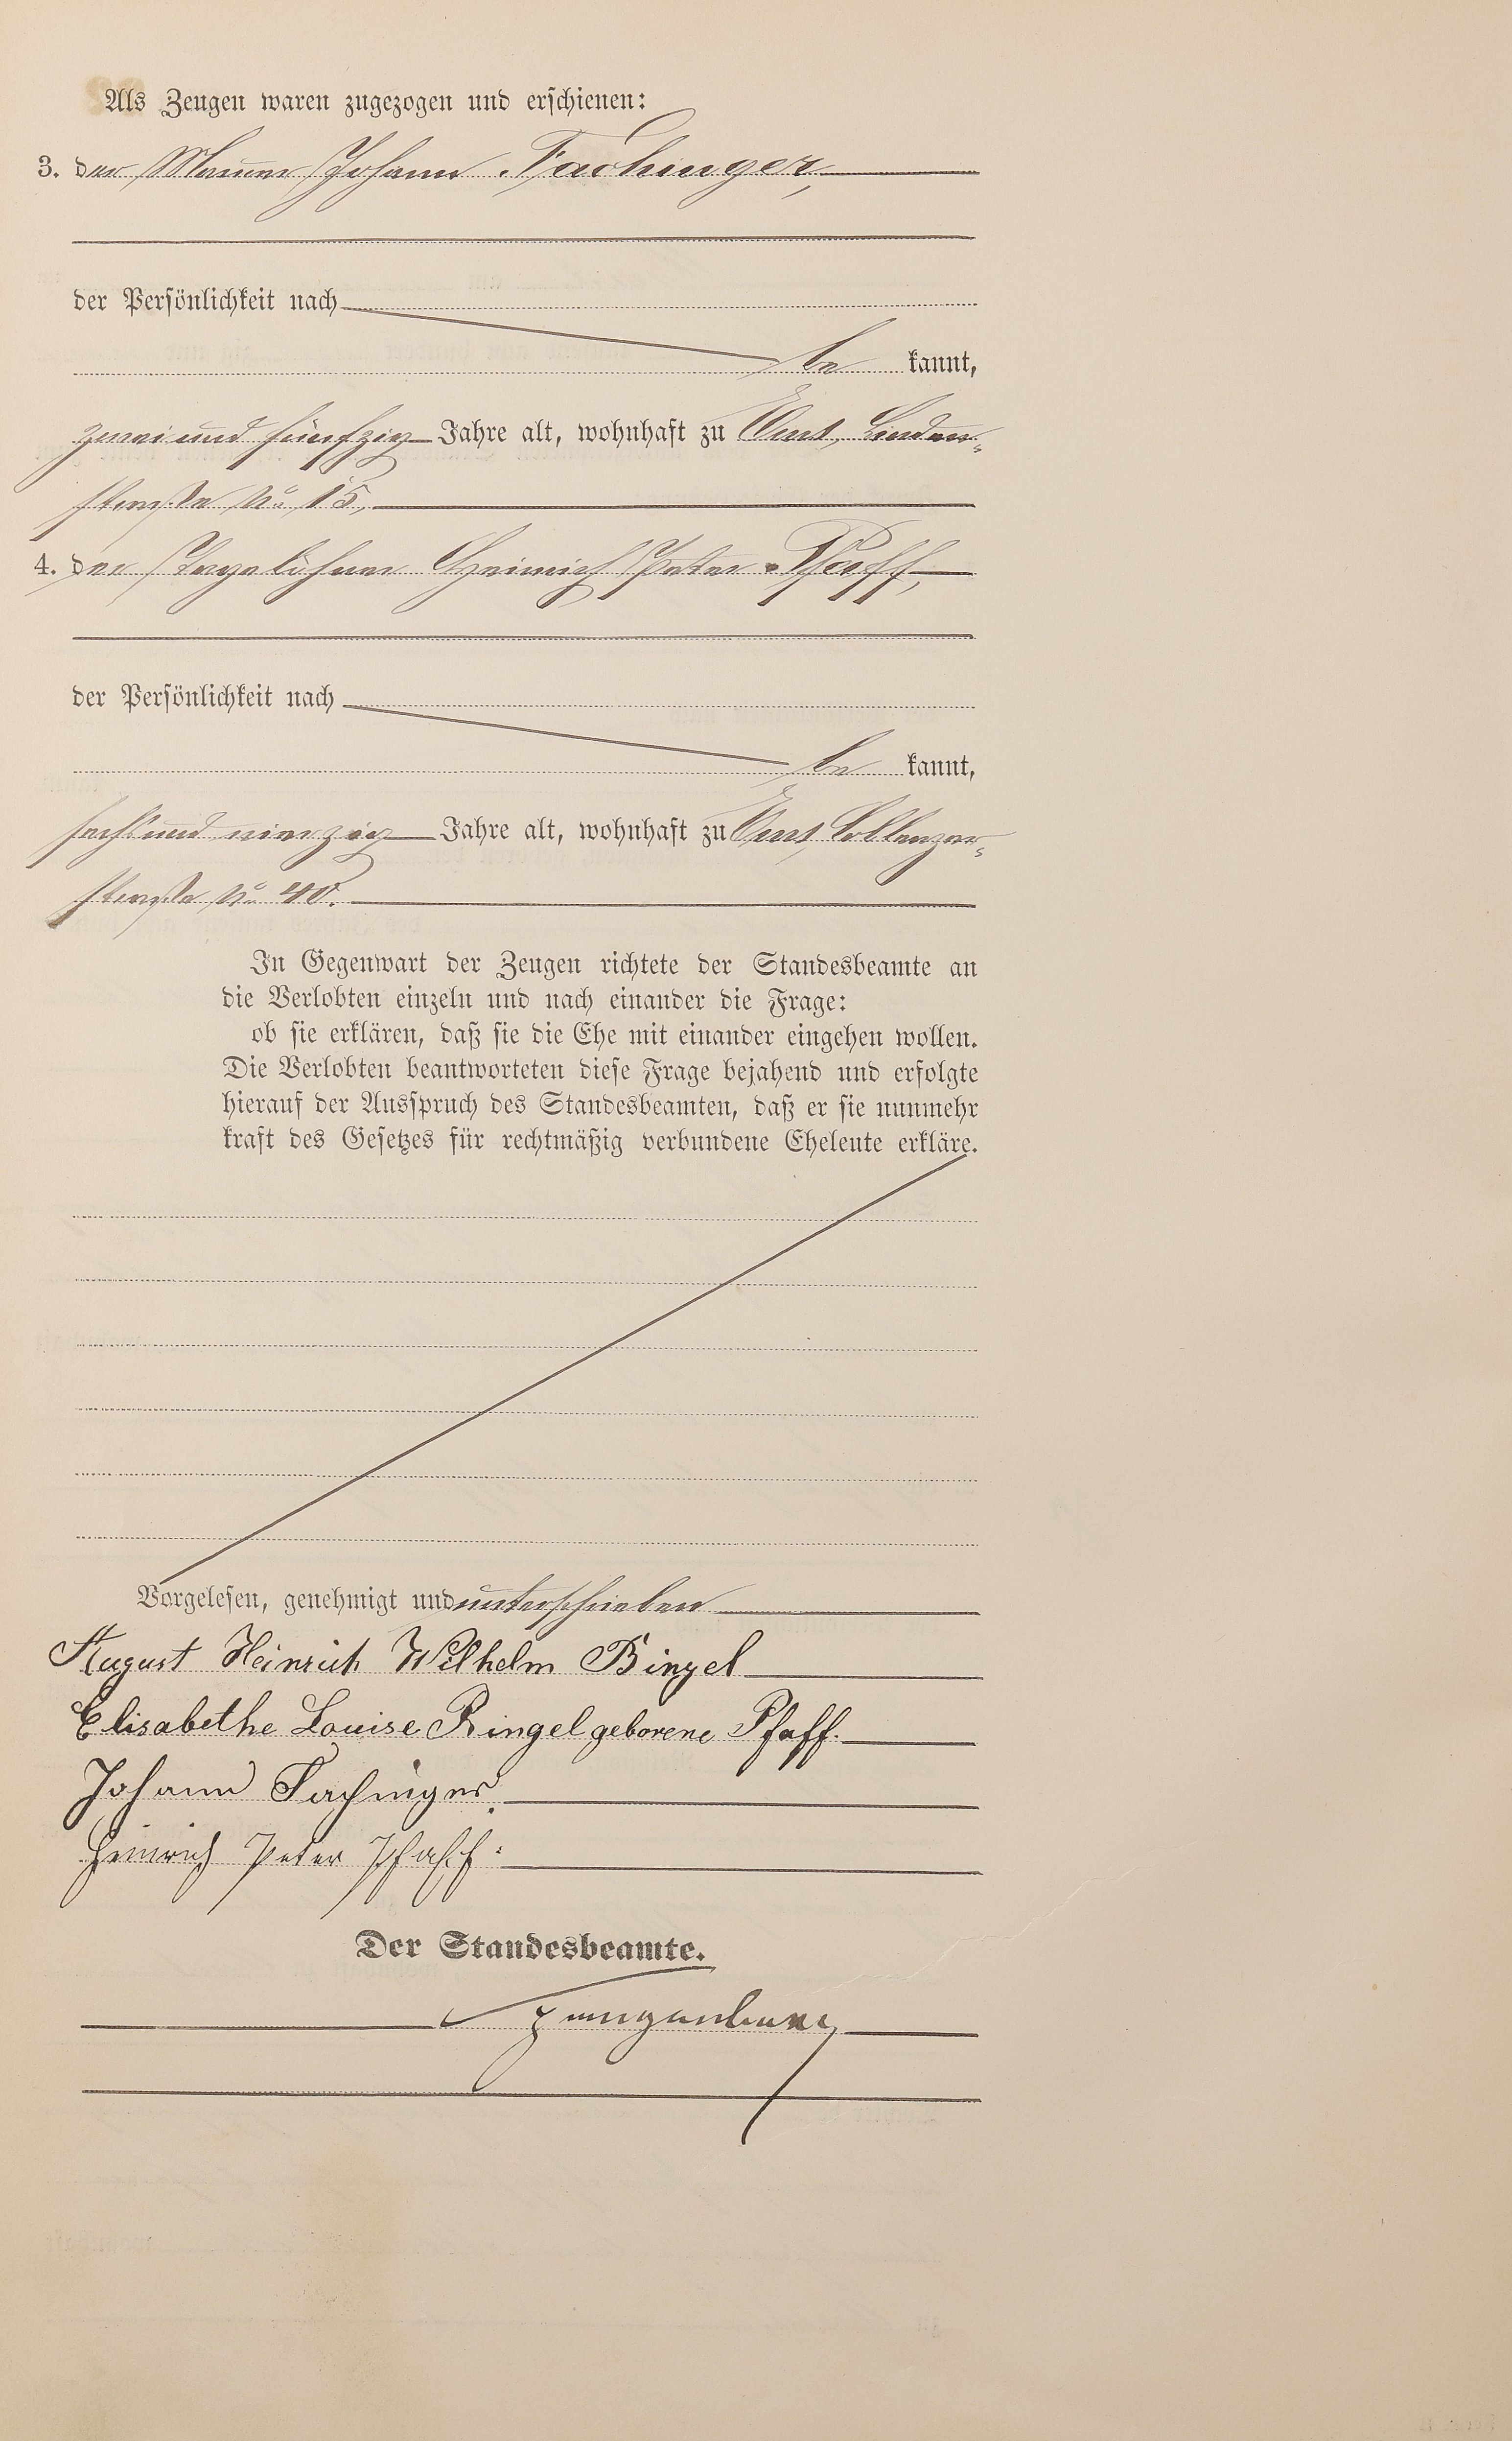 Als Zeugen waren zugezogen und erschienen:
3. der Maurer Johann Fachinger,
der Persönlichkeit nach
be kannt,
zwei und fünfzig Jahre alt, wohnhaft zu Ems, Linden-
straße No 15,
4. der Tagelöhner Heinrich Peter Pfaff,
der Persönlichkeit nach
be kannt,
sechs und vierzig Jahre alt, wohnhaft zu Ems, Coblenzer-
straße No 40.
In Gegenwart der Zeugen richtete der Standesbeamte an
die Verlobten einzeln und nach einander die Frage:
ob sie erklären, daß sie die Ehe mit einander eingehen wollen.
Die Verlobten beantworteten diese Frage bejahend und erfolgte
hierauf der Ausspruch des Standesbeamten, daß er sie nunmehr
kraft des Gesetzes für rechtmäßig verbundene Eheleute erkläre.
Vorgelesen, genehmigt und unterschrieben
August Heinrich Wilhelm Bingel
Elisabethe Louise Bingel geborene Pfaff.
Johann Fachinger.
Heinrich Peter Pfaff.
Der Standesbeamte.